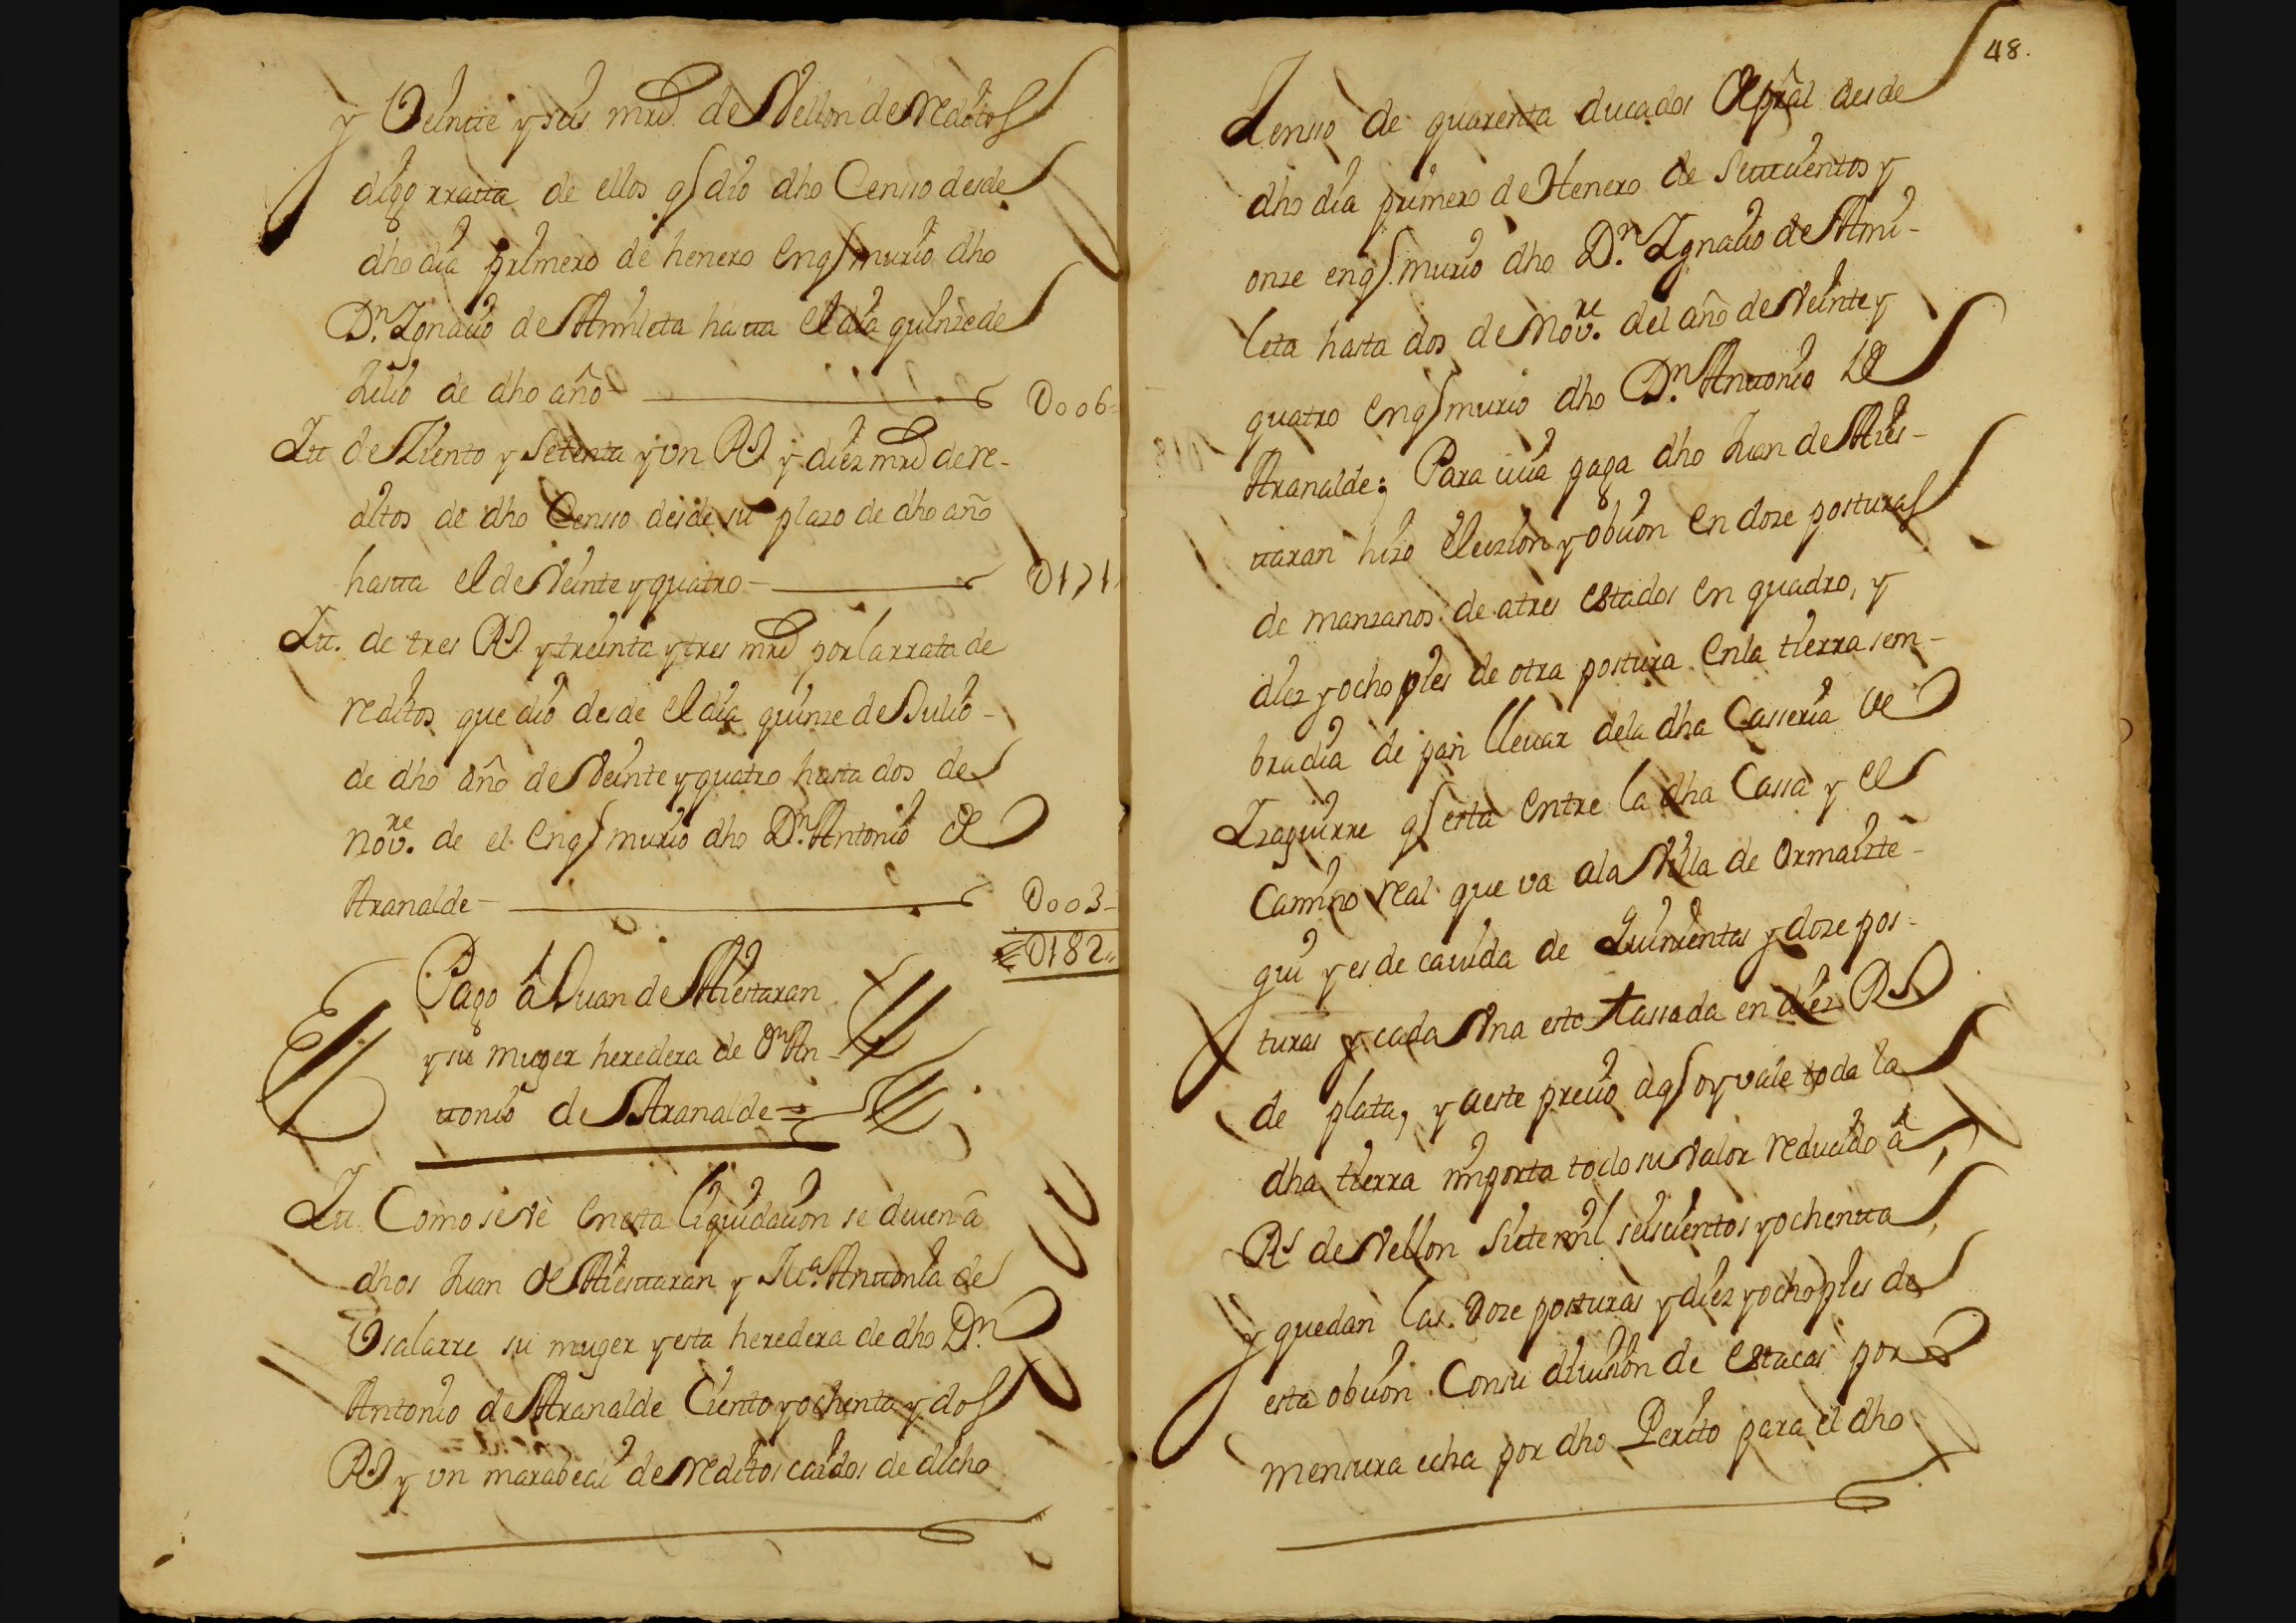 y Veintte y seis mrs. de Vellon de reditos
digo rratta de ellos q dio dho Censso desde
dho dia primero de henero en q murio dho
Dn. Ygnacio de Amileta hatta el dia quinze de
Julio de dho año — D006=
Itt de Ziento y Setenta y un Rs y diez mrs de re-
ditos de dho Censso desde su plazo de dho año
hatta el de Veinte y quatro — D171
Itt. de tres Rs y treinta y tres mrs por la rrata de
reditos que dio desde el dia quinze de Julio -
de dho año de Veinte y quatro hasta dos de
novre. de el en q murio dho Dn. Antonio de
Aranalde — D003-
D182,,
Pago â Juan de Aiestaran
y su muger heredera de Dn An-
ttonio de Aranalde =
Itt. Como se Vè en esta liquidacion se deven â
dhos Juan de Aiesttaran y Ma. Anttonia de
Osalarre su muger y esta heredera de dho Dn.
Antonio de Aranalde Ciento y ochenta y dos
Rs y un marabedi de reditos caidos de dicho
48.
Zensso de quarenta ducados de pral desde
dho dia primero de Henero de Settecientos y
onze en q murio dho Dn. Ygnacio de Ami-
leta hasta dos de Novre. del año de Veinte y
quatro en q murio dho Dn. Anttonio de
Aranalde: Para cuia paga dho Juan de Aies-
ttaran hizo eleczion y obcion en doze posturas
de manzanos de a tres estados en quadro, y
diez y ocho pies de otra postura en la tierra sem-
bradia de pan llevar de la dha Casseria de
Yzaguirre q esta entre la dha Cassa y el
Camino real que va a la Villa de Ormaizte-
gui y es de cavida de Quinientas y doze pos-
turas y cada Vna esta tassada en diez Rs
de plata, y a este precio a q oy vale toda la
dha tierra importa todo su Valor reducido â
Rs de Vellon Siete mil seiscientos y ochentta
y quedan las Doze posturas y diez y ocho pies de
esta obcion. Con su division de estacas por
mensura echa por dho Perito para el dho